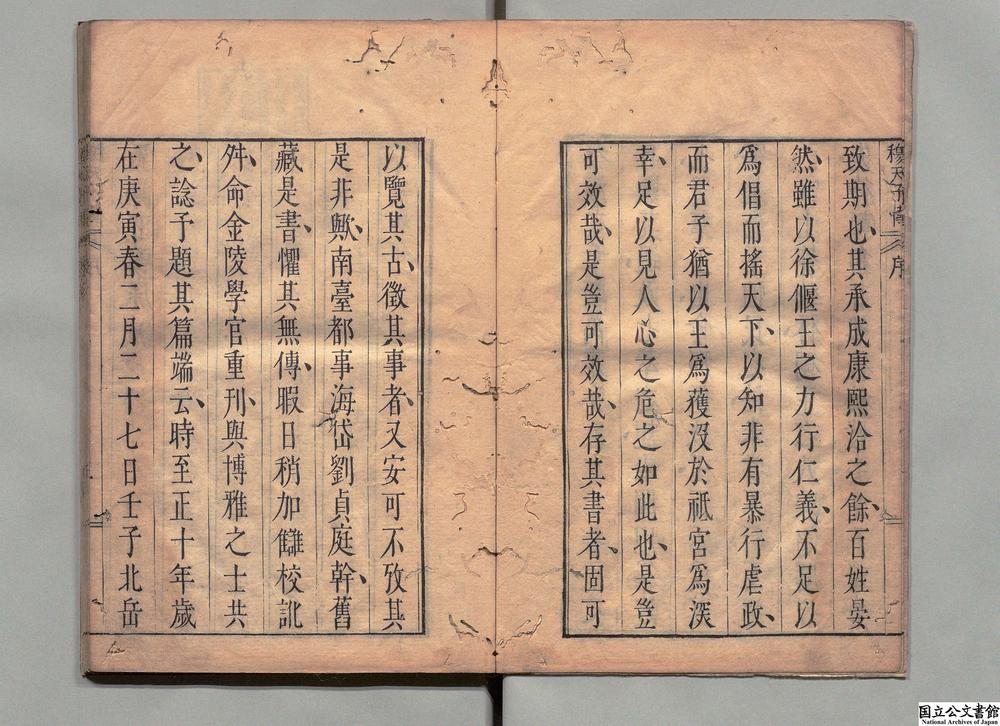 穆天子傳 序
致期也、其承成康熙洽之餘、百姓晏
然、雖以徐偃王之力行仁義、不足以
爲倡而搖天下、以知非有暴行虐政、
而君子猶以王爲獲沒於祗宮爲深
幸、足以見人心之危之如此也、是豈
可效哉、是豈可效哉、存其書者、固可
以覽其古、徵其事者、又安可不攷其
是非歟、南臺都事海岱劉貞庭幹、舊
藏是書、懼其無傳、暇日稍加讎校訛
舛、命金陵學官重刊、與博雅之士共
之、諗予題其篇端云、時至正十年歲
在庚寅春二月二十七日壬子北岳
国立公文書館
National Archives of Japan